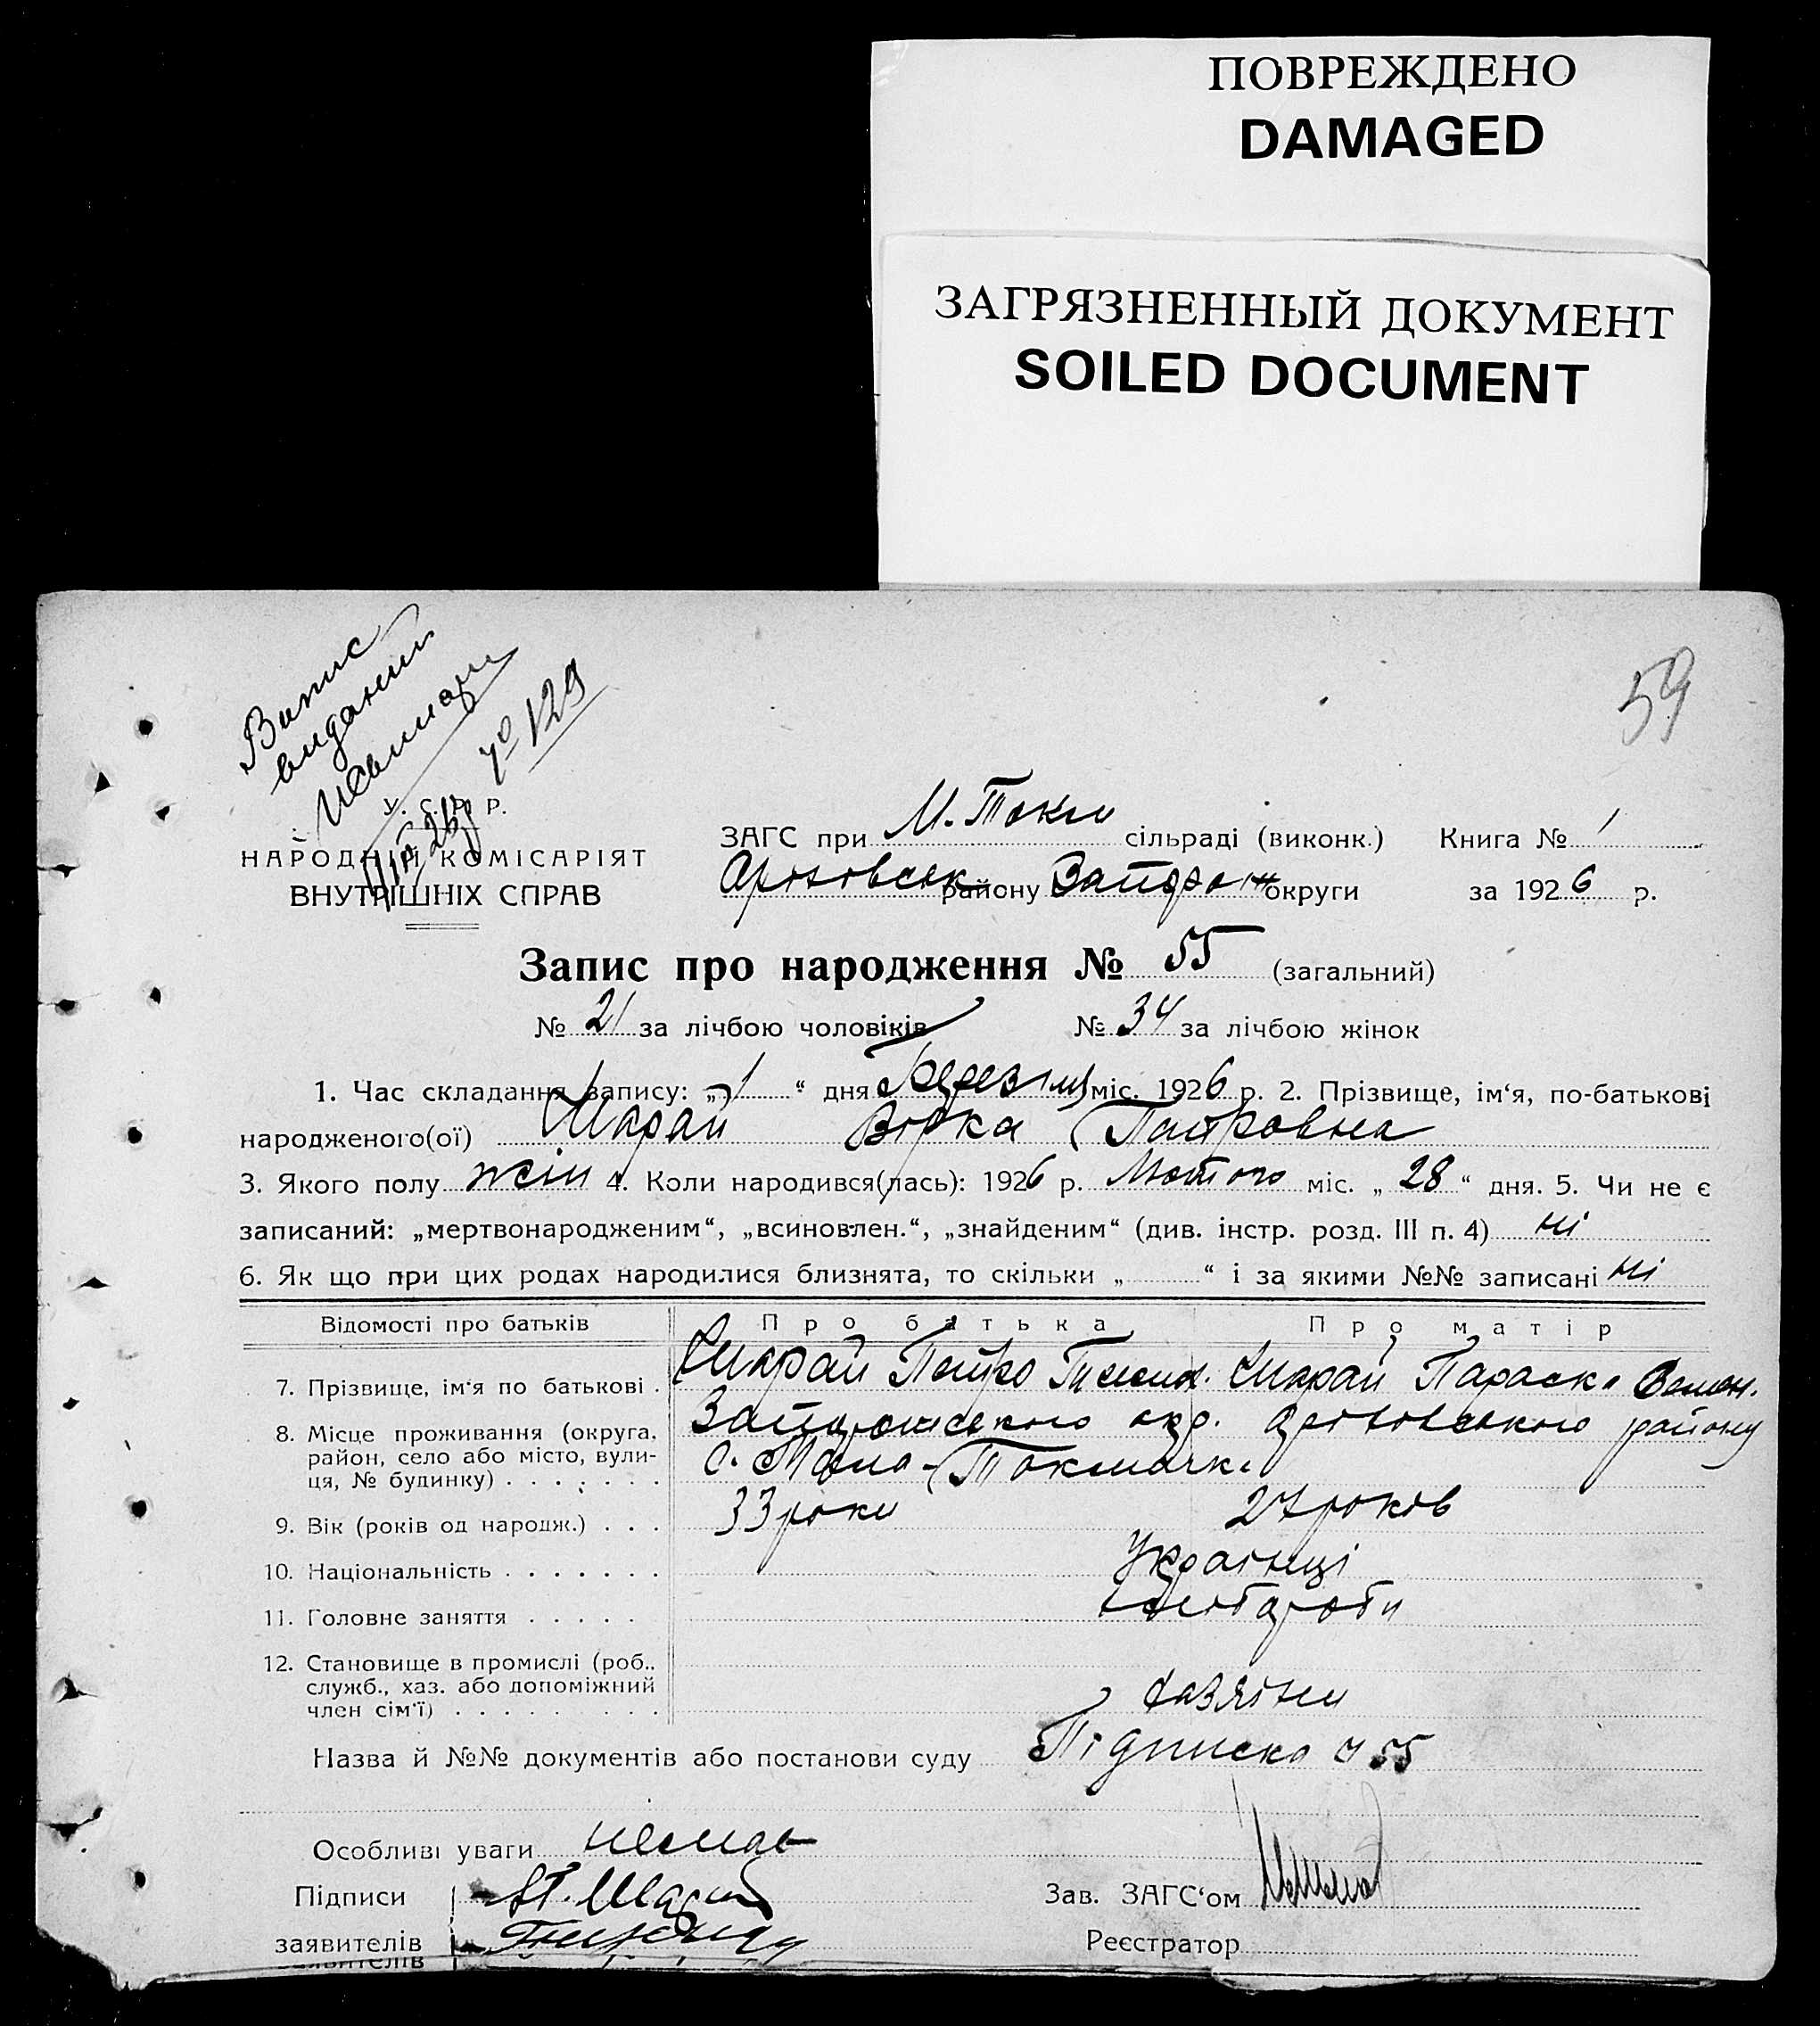 ПОВРЕЖДЕНО
DAMAGED
ЗАГРЯЗНЕННЫЙ ДОКУМЕНТ
SOILED DOCUMENT
59
Випис
виданий
№ 129
У. С. Р. Р.
НАРОДНІЙ КОМІСАРІЯТ
ВНУТРІШНІХ СПРАВ
ЗАГС при М. Токм сільраді (виконк.) Книга № 1
району округи за 1926 р.
Запис про народження № 55 (загальний)
№ 21 за лічбою чоловіків № 34 за лічбою жінок
1. Час складання запису: „1“ дня Березня міс. 1926 р. 2. Прізвище, ім‘я, по-батькові
народженого(ої) Шкрай Вірка Петровна
3. Якого полу жін 4. Коли народився(лась): 1926 р. Лютого міс. „28“ дня. 5. Чи не є
записаний: „мертвонародженим“, „всиновлен.“, „знайденим“ (див. інстр. розд. III п. 4) ні
6. Як що при цих родах народилися близнята, то скільки „ “ і за якими №№ записані ні
Відомості про батьків Про батька Про матір
7. Прізвище, ім‘я по батькові . Шкрай Петро Шкрай Параска Семен.
8. Місце проживання (округа, Запорожського окр. Оріховського району
район, село або місто, вули- с. Мала-Токмачка
ця, № будинку) . . . . . . .
9. Вік (років од народж.) . . . 33 роки 27 років
10. Національність . . . . . . . Українці
11. Головне заняття . . . . . хлібороби
12. Становище в промислі (роб..
служб., хаз. або допоміжний хазяїни
член сім‘ї) . . . . . . . . .
Назва й №№ документів або постанови суду Підписка ч 55
Особливі уваги немає
Підписи
Зав. ЗАГС‘ом
заявителів
Реєстратор
заявителів